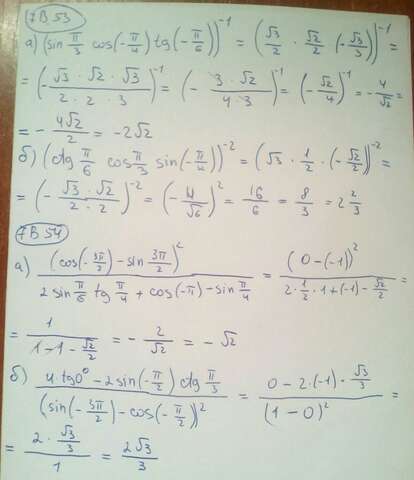 7В53
а) (sin π/3 cos(-π/4) tg(-π/6))^-1 = (√3/2 · √2/2 (-√3/3))^-1 =
= (- √3·√2·√3/2·2·3)^-1 = (- 3·√2/4·3)^-1 = (-√2/4)^-1 = -4/√2 =
= - 4√2/2 = -2√2
б) (ctg π/6 cos π/3 sin(-π/4))^-2 = (√3 · 1/2 · (-√2/2))^-2 =
= (- √3·√2/2·2)^-2 = (- 4/√6)^2 = 16/6 = 8/3 = 2 2/3
7В54
а) (cos(-3π/2) - sin 3π/2)^2/2 sin π/6 tg π/4 + cos(-π) - sin π/4 = (0-(-1))^2/2·1/2·1+(-1)-√2/2 =
= 1/1-1-√2/2 = - 2/√2 = -√2
б) 4·tg0° - 2 sin(-π/2) ctg π/3/(sin(-3π/2) - cos(-π/2))^2 = 0-2·(-1)·√3/3/(1-0)^2 =
= 2·√3/3/1 = 2√3/3